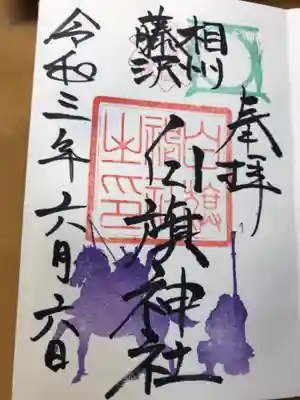 奉拝
相州
藤沢
白旗神社
令和三年六月六日